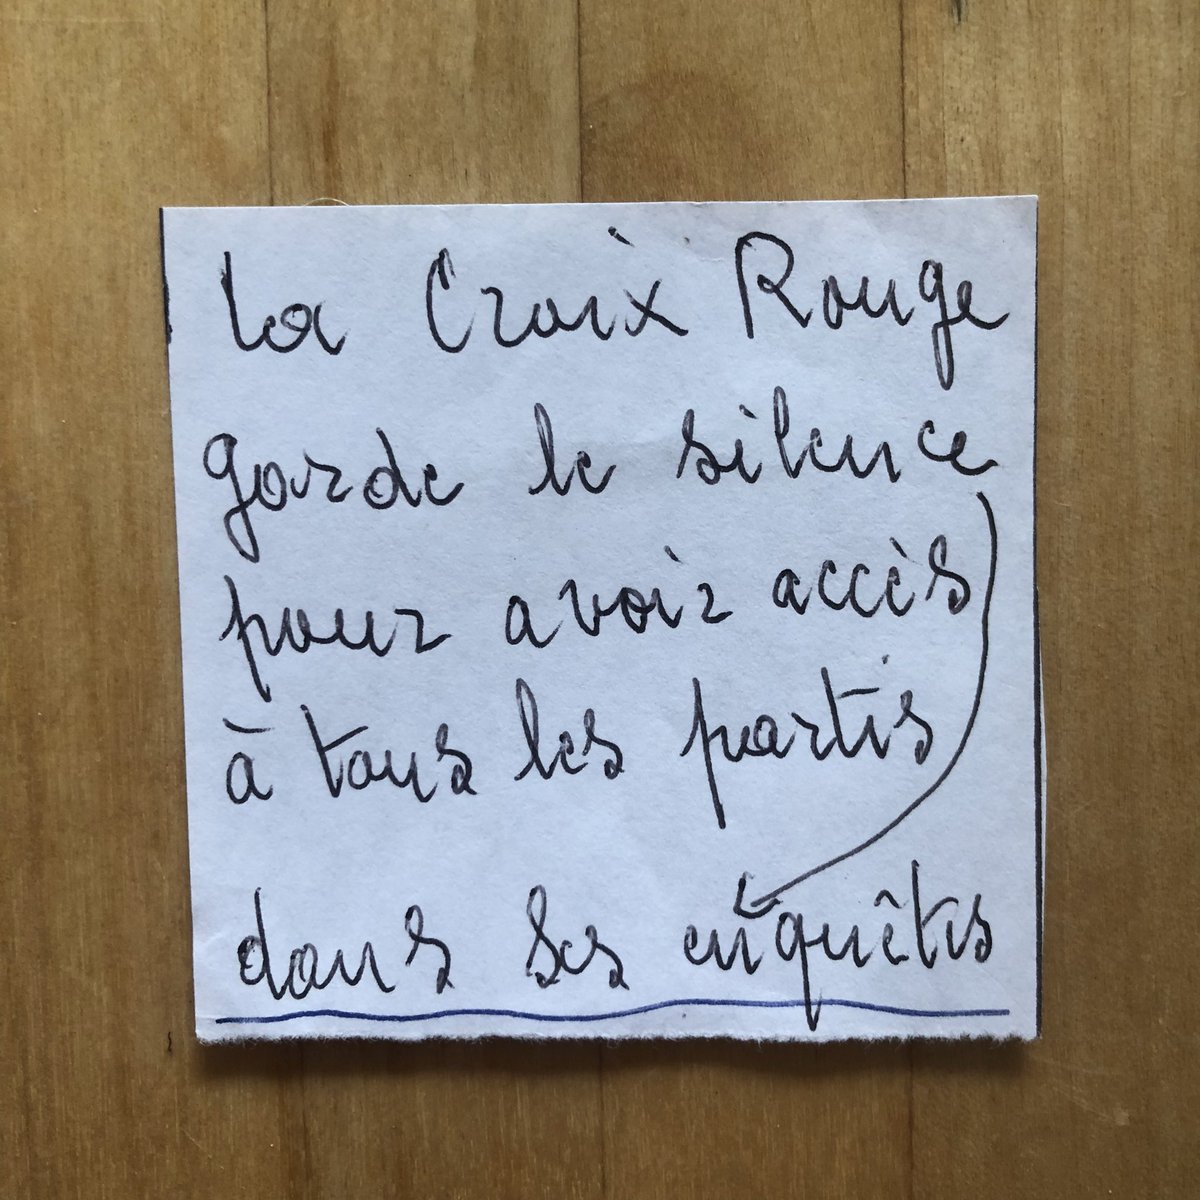 La Croix Rouge
garde le silence
pour avoir accès
à tous les partis
dans ses enquêtes